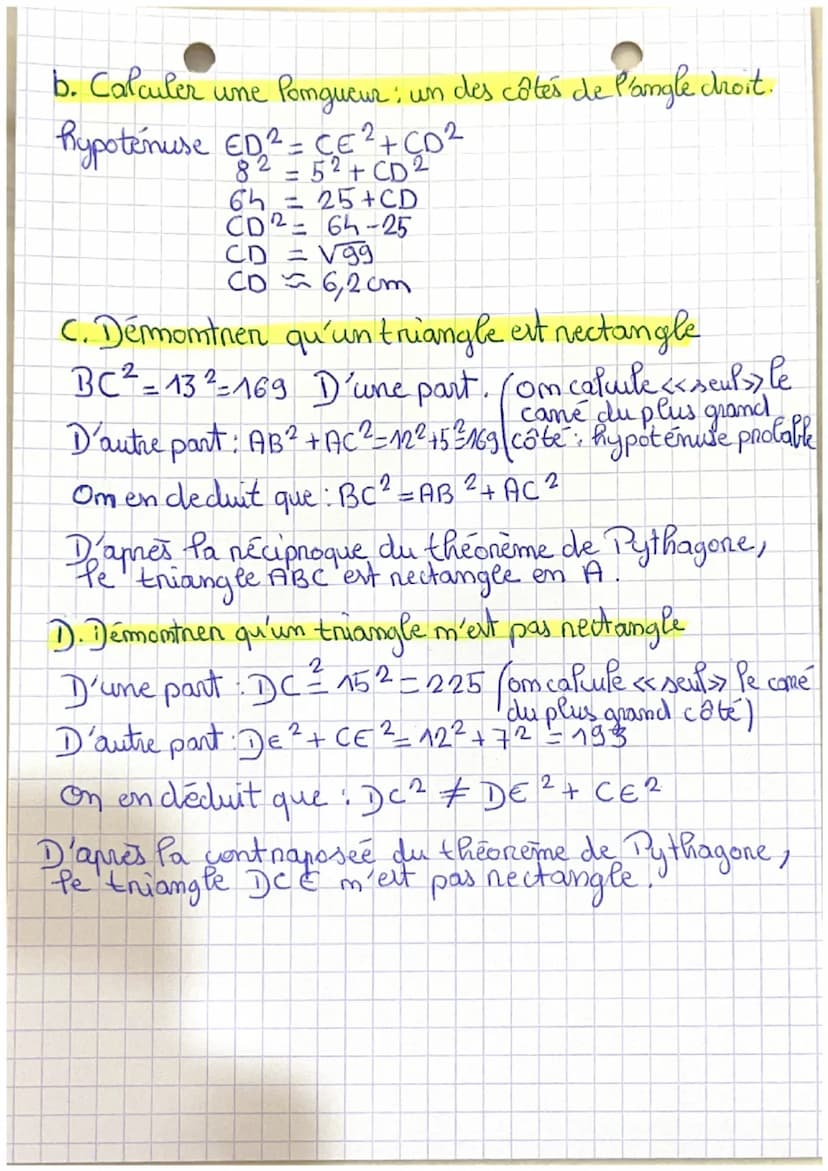 b. Calculer une longueur : un des côtés de l'angle droit.
hypoténuse ED² = CE² + CD²
8² = 5² + CD²
64 = 25 + CD
CD² = 64 - 25
CD = √99
CD ≈ 6,2 cm
C. Démontrer qu'un triangle est rectangle
BC² = 13² = 169 D'une part. (on calcule «seul» le
carré du plus grand
D'autre part : AB² + AC² = 12² + 5² = 169 côté : hypoténuse probable
On en deduit que : BC² = AB² + AC²
D'après la réciproque du théorème de Pythagore,
le triangle ABC est rectangle en A.
D. Démontrer qu'un triangle n'est pas rectangle
D'une part : DC² = 15² = 225 (on calcule «seul» le carré
du plus grand côté)
D'autre part : DE² + CE² = 12² + 7² = 193
On en déduit que : DC² ≠ DE² + CE²
D'après la contraposeé du théorème de Pythagore,
le triangle DCE n'est pas rectangle.